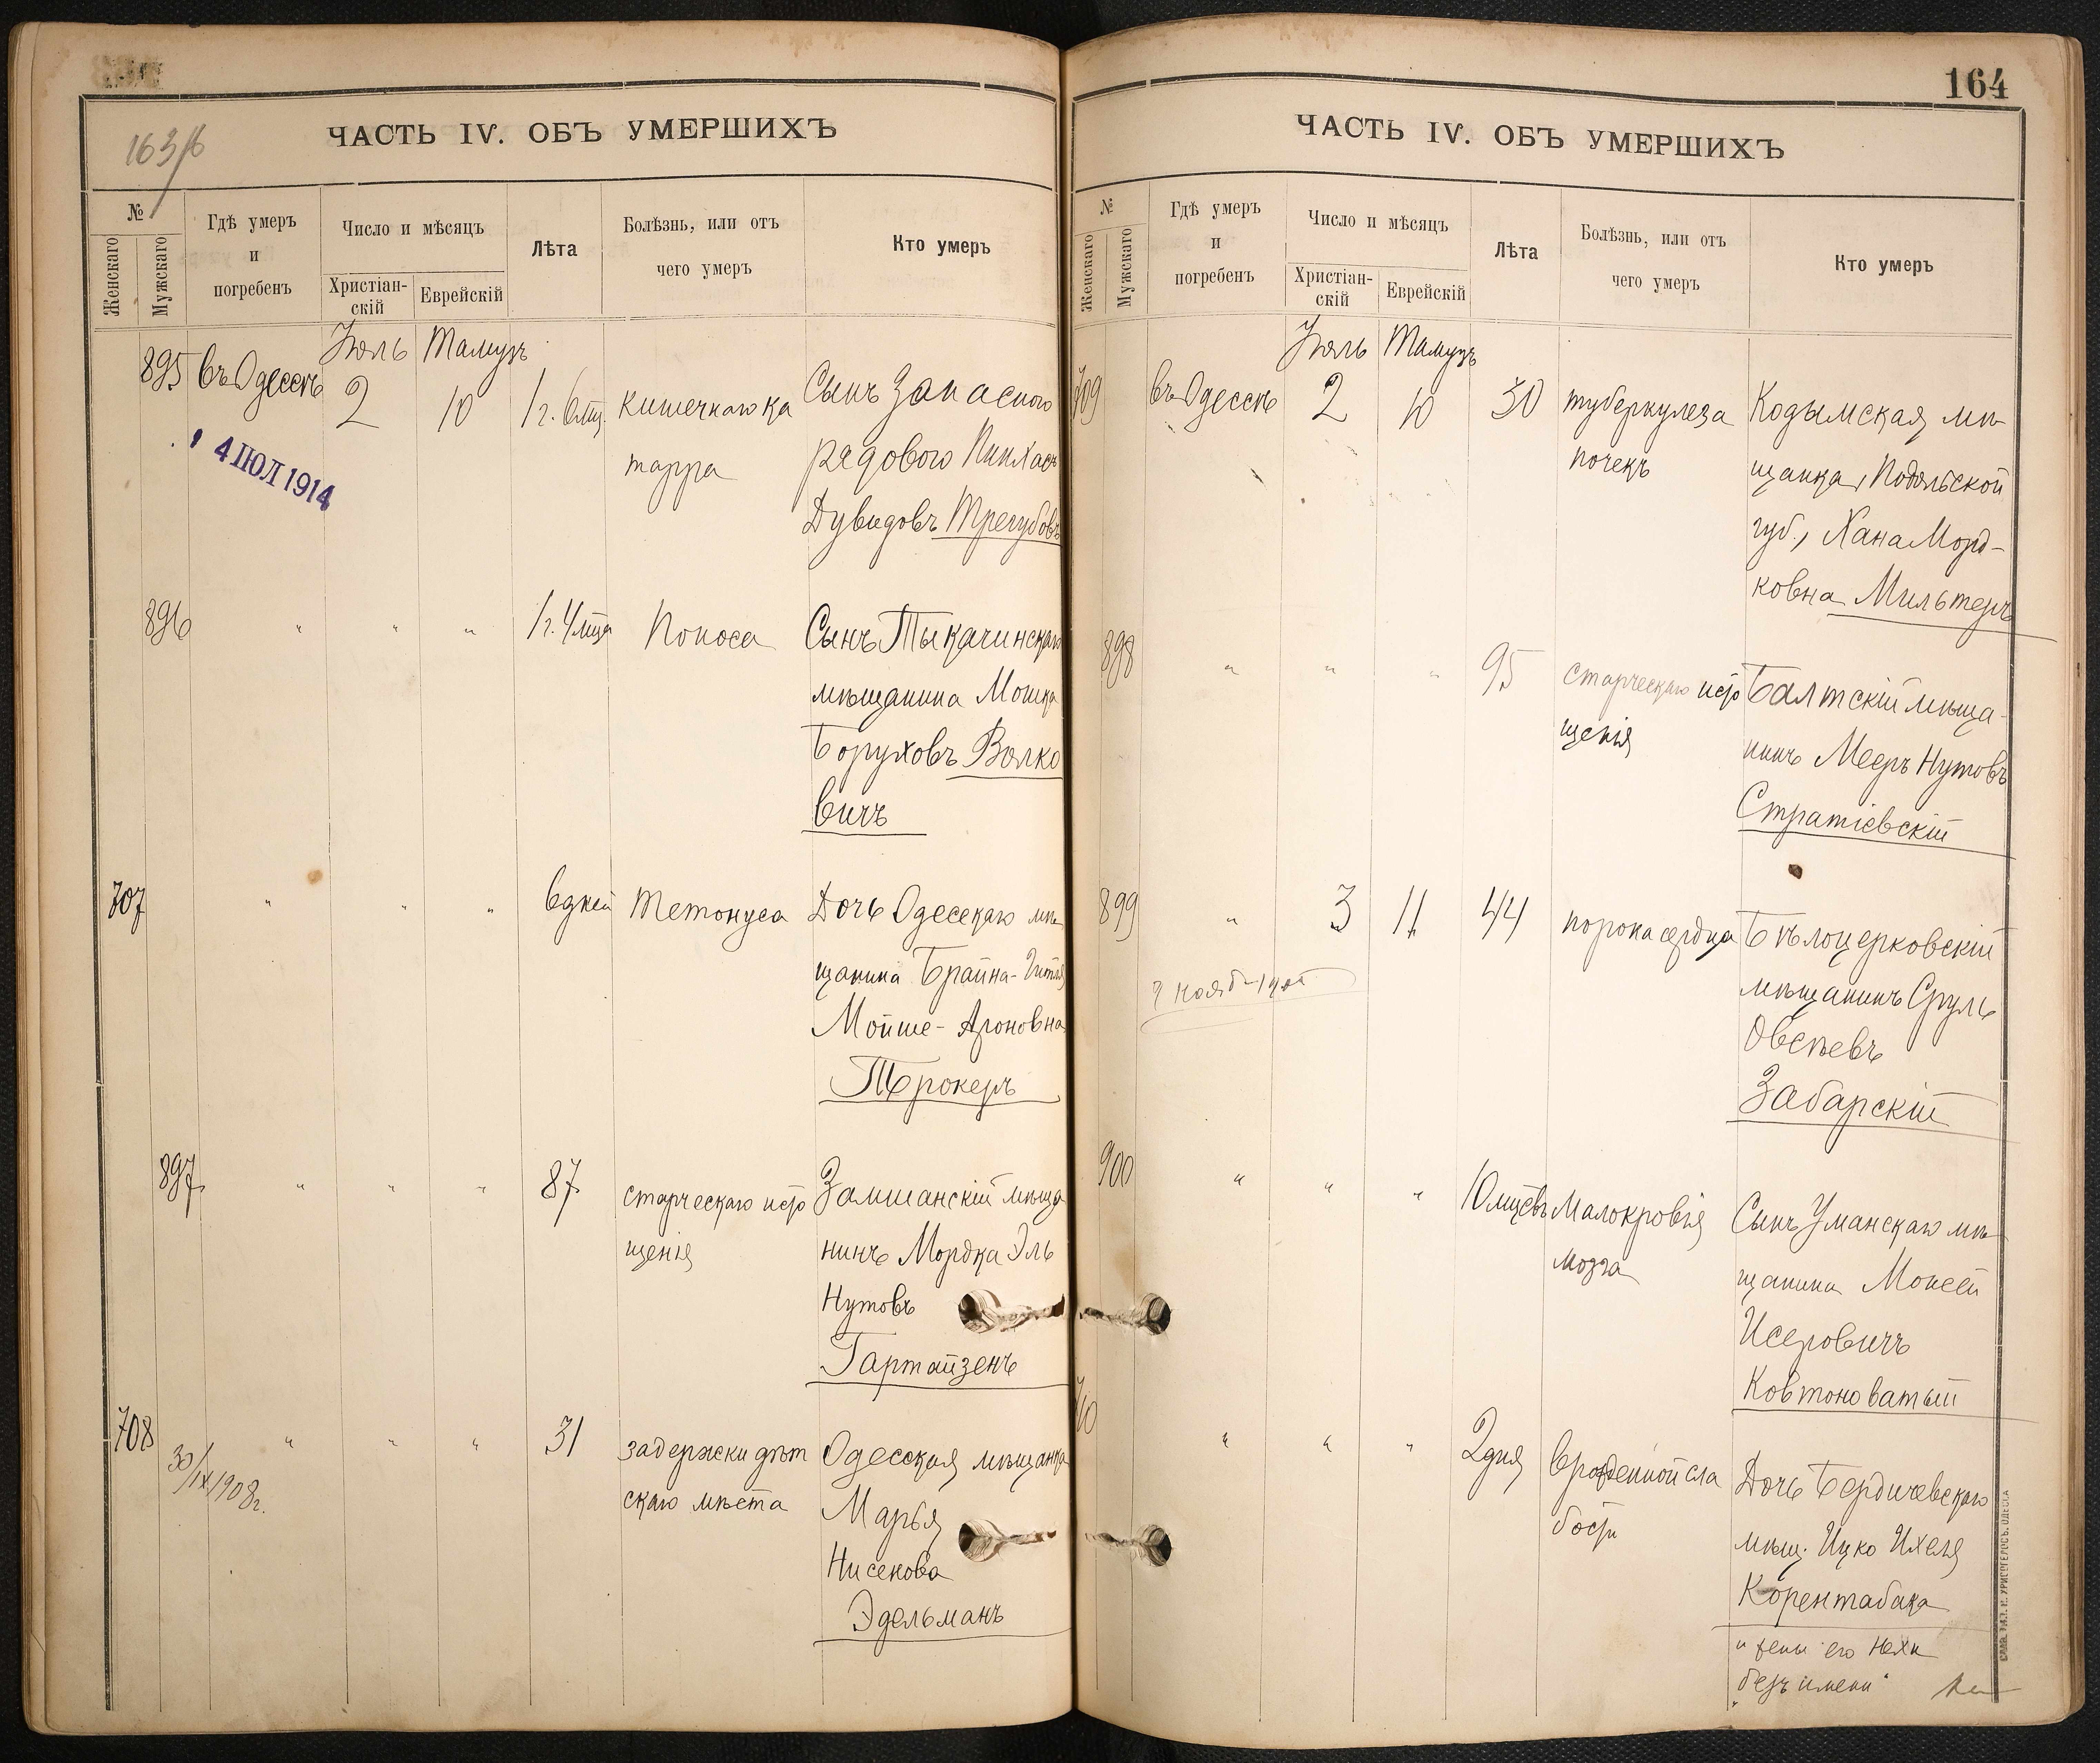 163/б
ЧАСТЬ IV. ОБЪ УМЕРШИХЪ
№
Женскаго
Мужскаго
Гдѣ умеръ
и
погребенъ
Число и мѣсяцъ
Христіан-
скій
Еврейскій
Лѣта
Болѣзнь, или отъ
чего умеръ
Кто умеръ
Іюль Тамузъ
895 въ Одессѣ 2 10 1 г. 6 мц. кишечнаго ка
тарра
Сынъ запасного
рядового Пинхасъ
Дувидовъ Трегубовъ
4 ІЮЛ 1914
896 " " " 1 г. 4 мца Поноса
Сынъ Тыкачинскаго
мѣщанина Мошка
Боруховъ Волко
вичъ
707 " " " 6 дней Тетонуса
Дочь Одесскаго мѣ
щанина Брайна-Гитля
Мойше-Ароновна
Трокеръ
897 " " " 87 старческаго исто
щенія
Замшанскій мѣща
нинъ Мордка Эль
Нутовъ
Гартайзенъ
708 " " " 31 задержки дѣт
скаго мѣста
30/IX 1908 г.
Одесская мѣщанка
Марья
Нисенова
Эдельманъ
164
ЧАСТЬ IV. ОБЪ УМЕРШИХЪ
№
Женскаго
Мужскаго
Гдѣ умеръ
и
погребенъ
Число и мѣсяцъ
Христіан-
скій
Еврейскій
Лѣта
Болѣзнь, или отъ
чего умеръ
Кто умеръ
Іюль Тамузъ
709 въ Одессѣ 2 10 30 туберкулеза
почекъ
Кодымская мѣ
щанка, Подольской
губ., Хана Морд-
ковна Мильтеръ
898 " " " 95 старческаго исто
щенія
Балтскій мѣща-
нинъ Мееръ Нутовъ
Стратіевскій
899 " 3 11 44 порока сердца
Бѣлоцерковскій
мѣщанинъ Сруль
Овсѣевъ
Забарскій
900 " " " 10 мцевъ Малокровія
мозга
Сынъ Уманскаго мѣ
щанина Моисей
Исеровичъ
Ковтоноватый
710 " " " 2 дня врожденной сла
бости
Дочь Бердичевскаго
мѣщ. Ицко Ихеля
Корентабака
и жены его Нехи
"безъ имени"